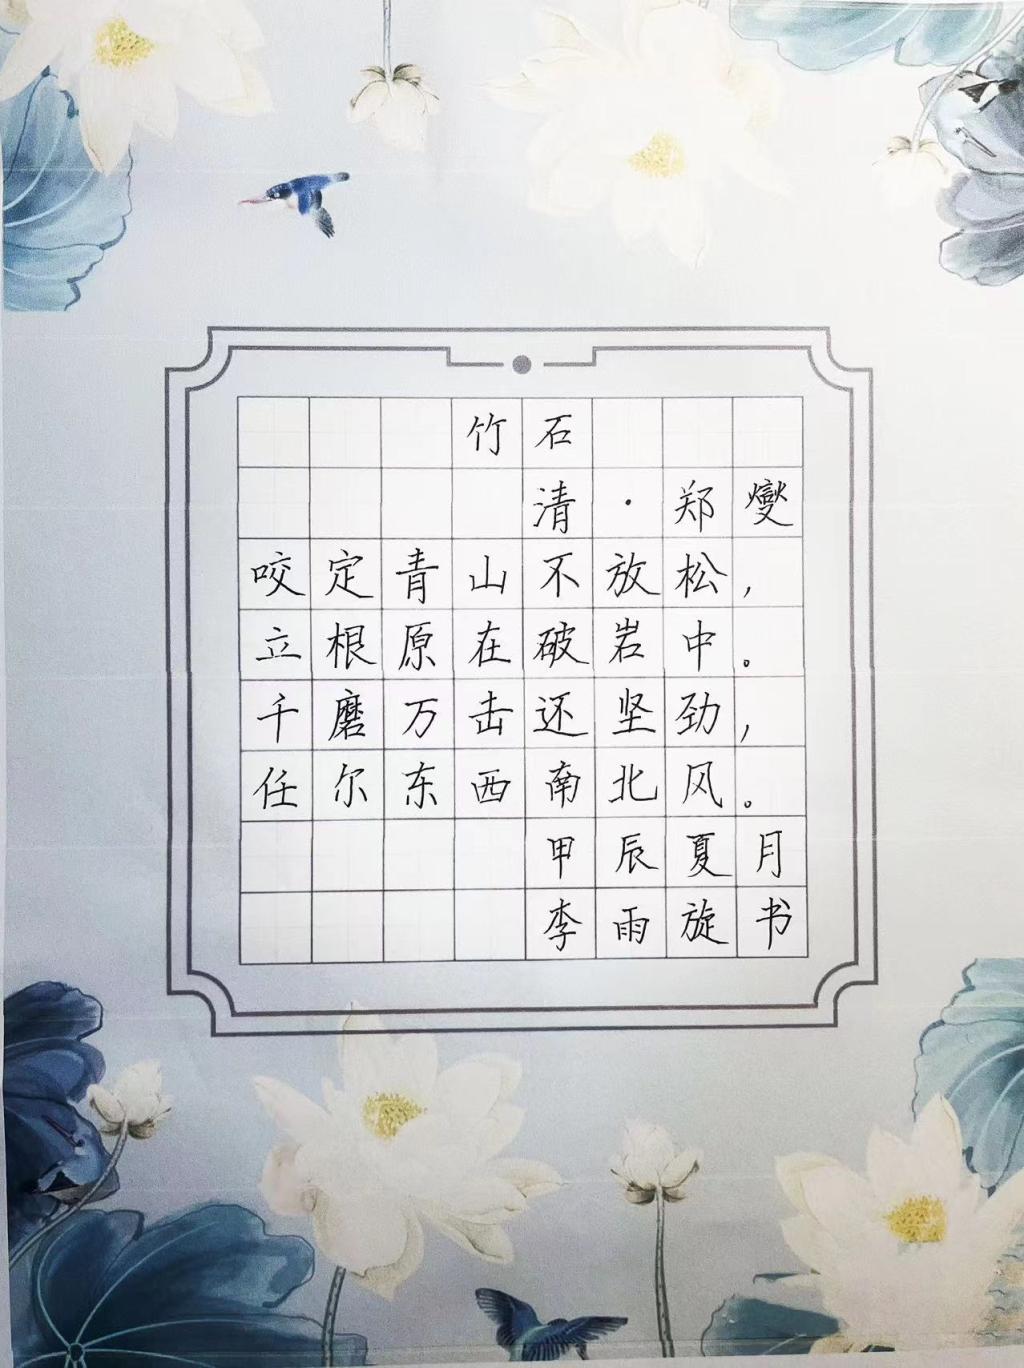 竹石
清·郑燮
咬定青山不放松，
立根原在破岩中。
千磨万击还坚劲，
任尔东西南北风。
甲辰夏月
李雨旋书